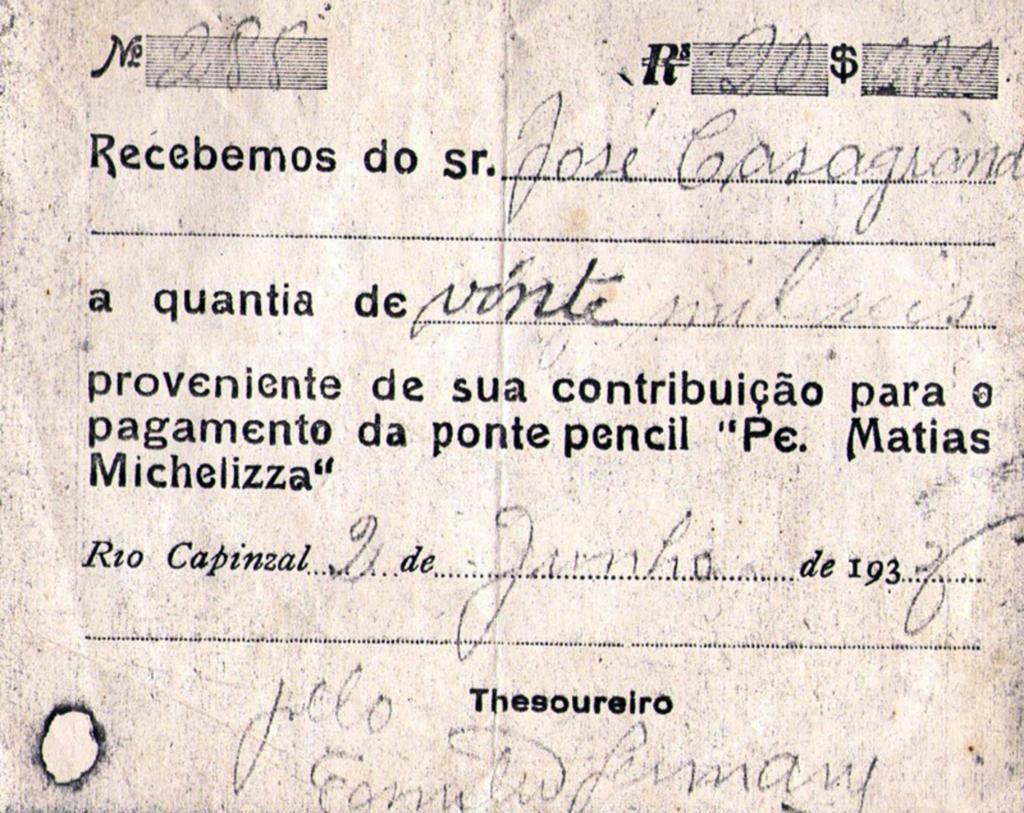 Nº 288 Rs 20$000
Recebemos do sr. José Casagrand
a quantia de vinte mil reis
proveniente de sua contribuição para o
pagamento da ponte pencil "Pe. Matias
Michelizza"
Rio Capinzal 2 de Junho de 193
Thesoureiro
pelo